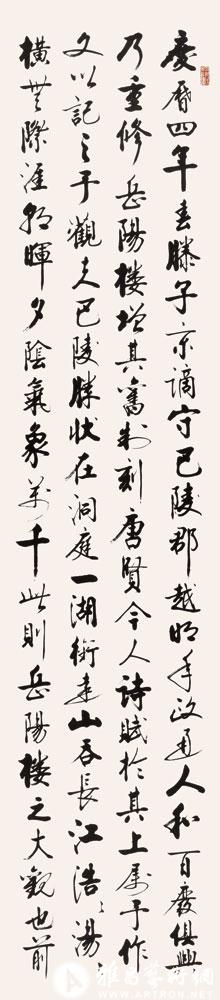 慶曆四年春滕子京謫守巴陵郡越明年政通人和百廢俱興
乃重修岳陽樓增其舊制刻唐賢今人詩賦於其上属予作
文以記之予觀夫巴陵勝狀在洞庭一湖銜遠山吞長江浩々湯
橫無際涯朝暉夕陰氣象萬千此則岳陽樓之大觀也前
雅昌藝術網
WWW.ARTRON.NET